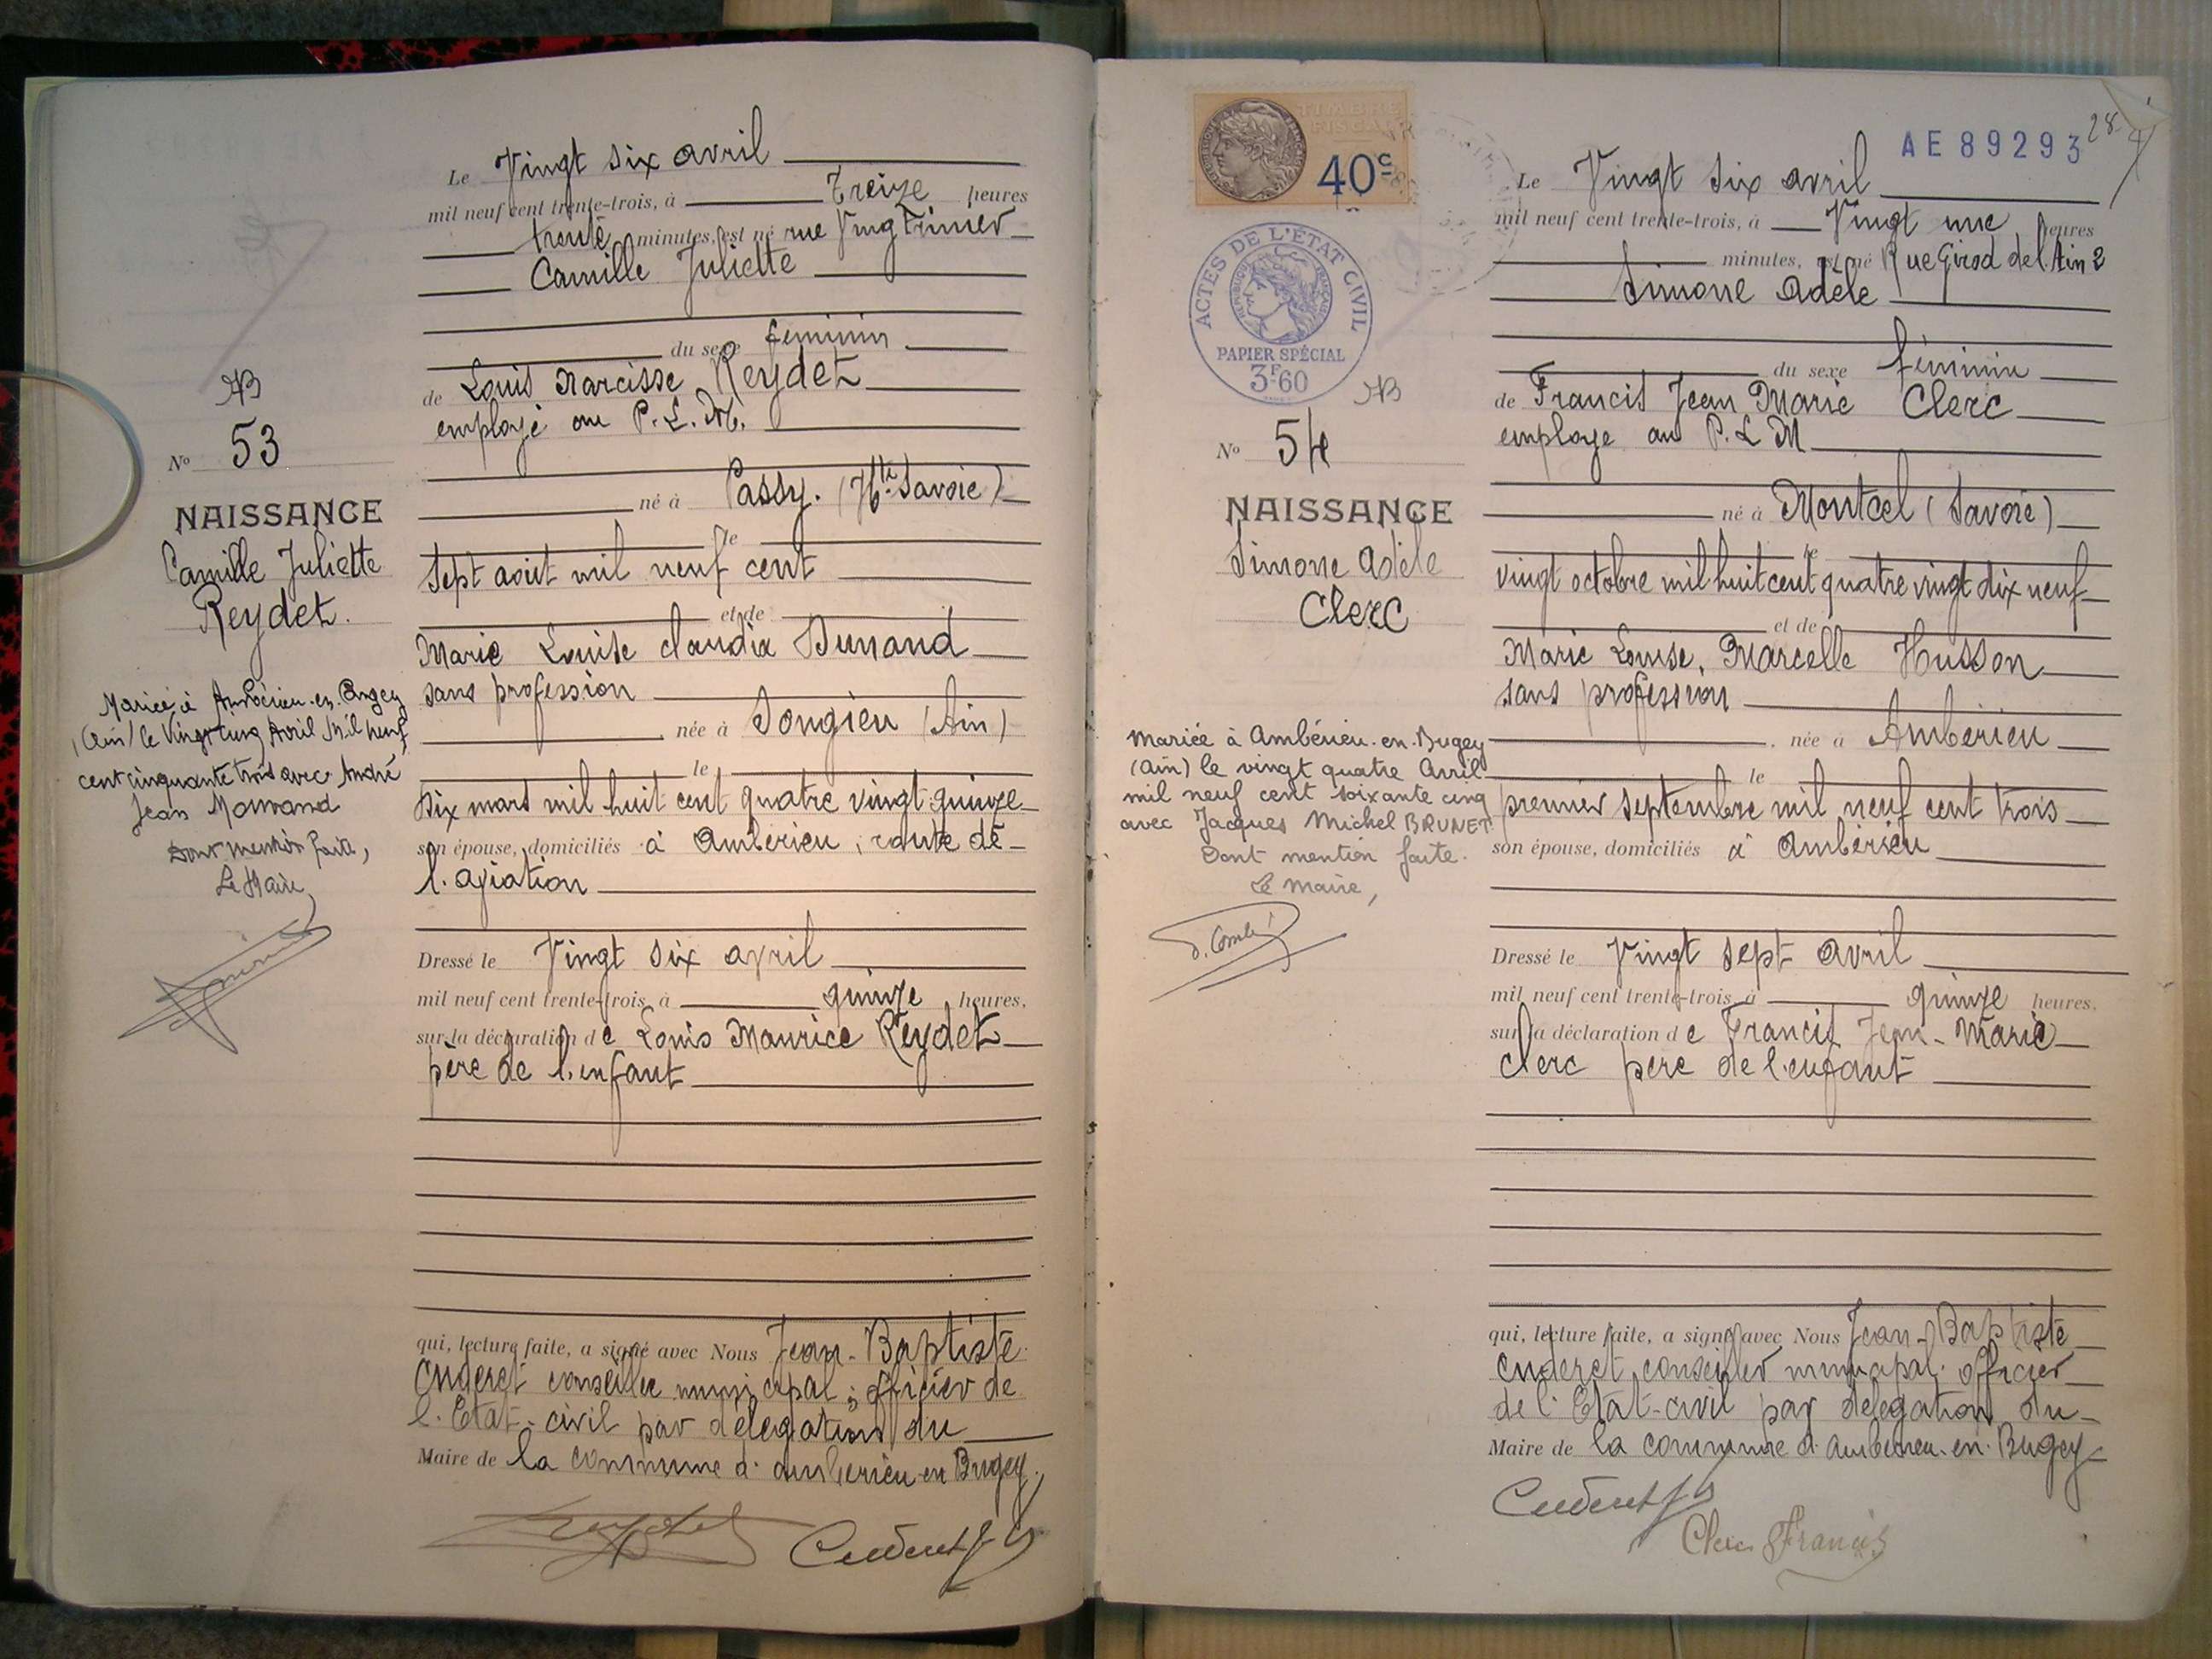 Le Vingt six avril
mil neuf cent trente-trois, à treize heures
trente minutes, est né rue Vingtrinier
Camille Juliette
du sexe féminin
de Louis Narcisse Reydet
employé au P.L.M.
né à Passy. (Hte Savoie)
le
sept août mil neuf cent
et de
Marie Louise Claudia Dunand
sans profession
née à Songieu (Ain)
le
six mars mil huit cent quatre vingt quinze
son épouse, domiciliés à Ambérieu, route de
l'aviation
Dressé le Vingt six avril
mil neuf cent trente-trois, à quinze heures,
sur la déclaration de Louis Maurice Reydet
père de l'enfant
qui, lecture faite, a signé avec Nous Jean-Baptiste
Cuderet conseiller municipal, officier de
l'Etat-civil par délégation du
Maire de la commune d'Ambérieu-en-Bugey
Cuderet J B
AB
No 53
NAISSANCE
Camille Juliette
Reydet.
Mariée à Ambérieu-en-Bugey
(Ain) le Vingt cinq Avril Mil neuf
cent cinquante trois avec André
Jean
Dont mention faite,
Le Maire,
TIMBRE
FISCAL
40c
ACTES DE L'ETAT CIVIL
REPUBLIQUE FRANÇAISE
PAPIER SPÉCIAL
3F60
AB
No 54
NAISSANCE
Simone Adèle
Clerc
Mariée à Ambérieu-en-Bugey
(Ain) le vingt quatre Avril
mil neuf cent soixante cinq
avec Jacques Michel BRUNET
Dont mention faite.
Le Maire,
AE 89293
28
Le Vingt six avril
mil neuf cent trente-trois, à Vingt une heures
minutes, est né Rue Girod de l'Ain 2
Simone Adèle
du sexe féminin
de Francis Jean Marie Clerc
employe au P.L M
né à Montcel (Savoie)
le
vingt octobre mil huit cent quatre vingt dix neuf
et de
Marie Louise, Marcelle Husson
sans profession
née à Ambérieu
le
premier septembre mil neuf cent trois
son épouse, domiciliés à Ambérieu
Dressé le Vingt sept avril
mil neuf cent trente-trois, à quinze heures,
sur la déclaration de Francis Jean-Marie
Clerc père de l'enfant
qui, lecture faite, a signé avec Nous Jean-Baptiste
Cuderet conseiller municipal officier
de l'Etat-civil par délégation du
Maire de la commune d'Ambérieu-en-Bugey
Cuderet J B
Clerc Francis